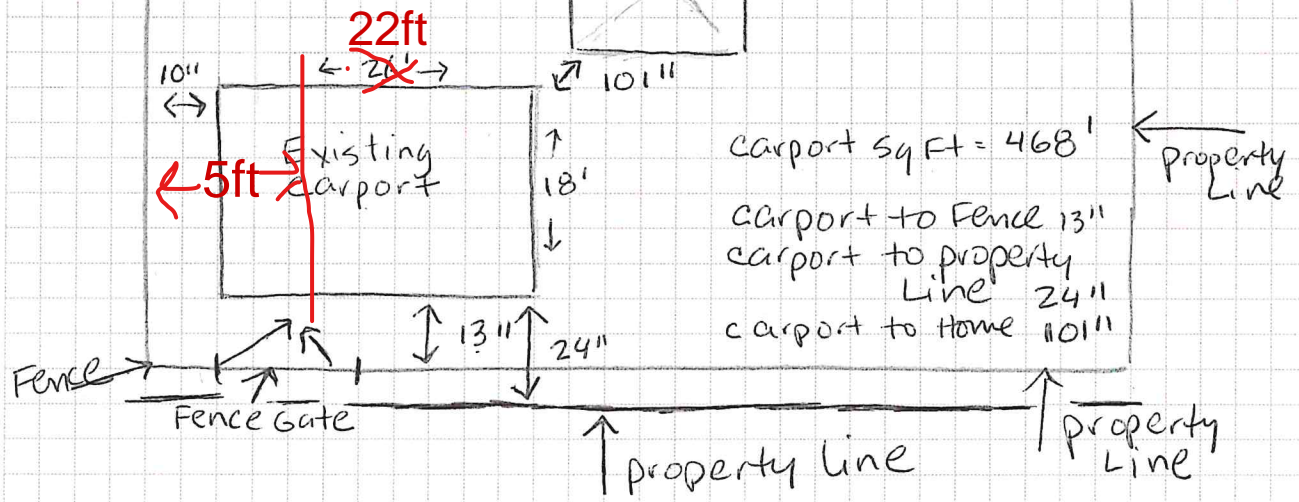 22ft
10"
26'
101"
Existing
carport
5ft
18'
carport sq Ft = 468'
property
Line
carport to Fence 13"
carport to property
Line 24"
carport to Home 101"
13"
24"
Fence
Fence Gate
property line
property
Line